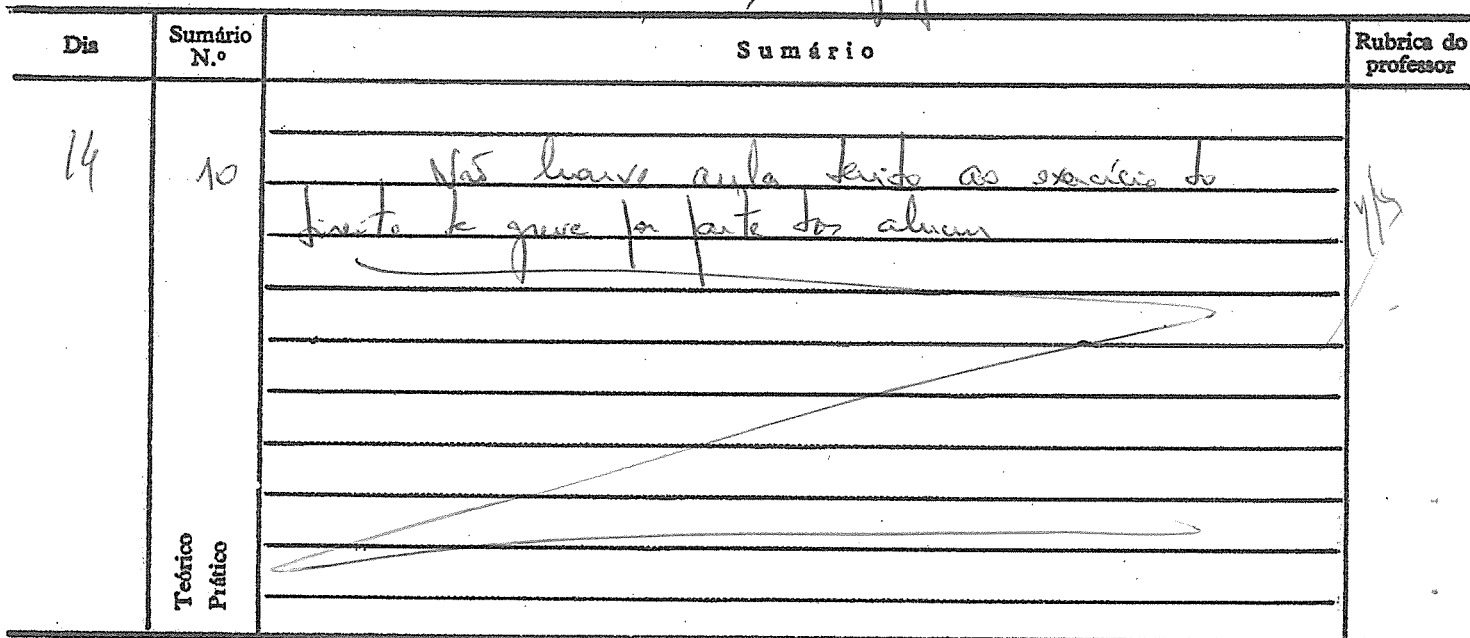 Dia
Sumário N.º
Sumário
Rubrica do professor
14
10
Não houve aula devido ao exercício do
direito de greve por parte dos alunos
Teórico
Prático